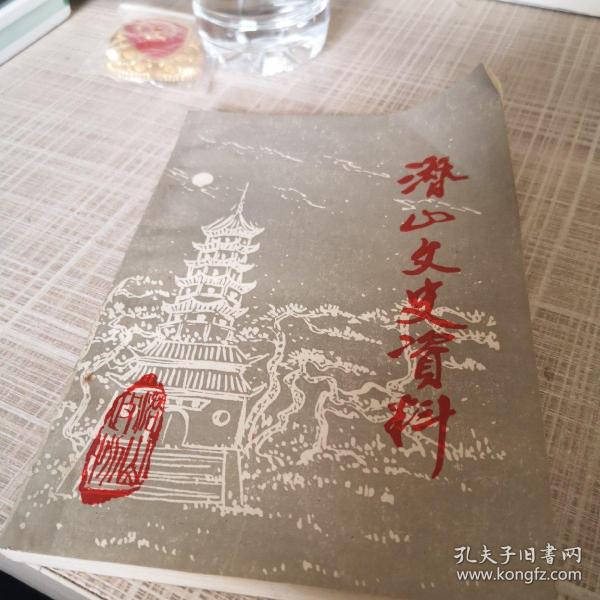 潛山文史資料
孔夫子旧書网
www.kongfz.com